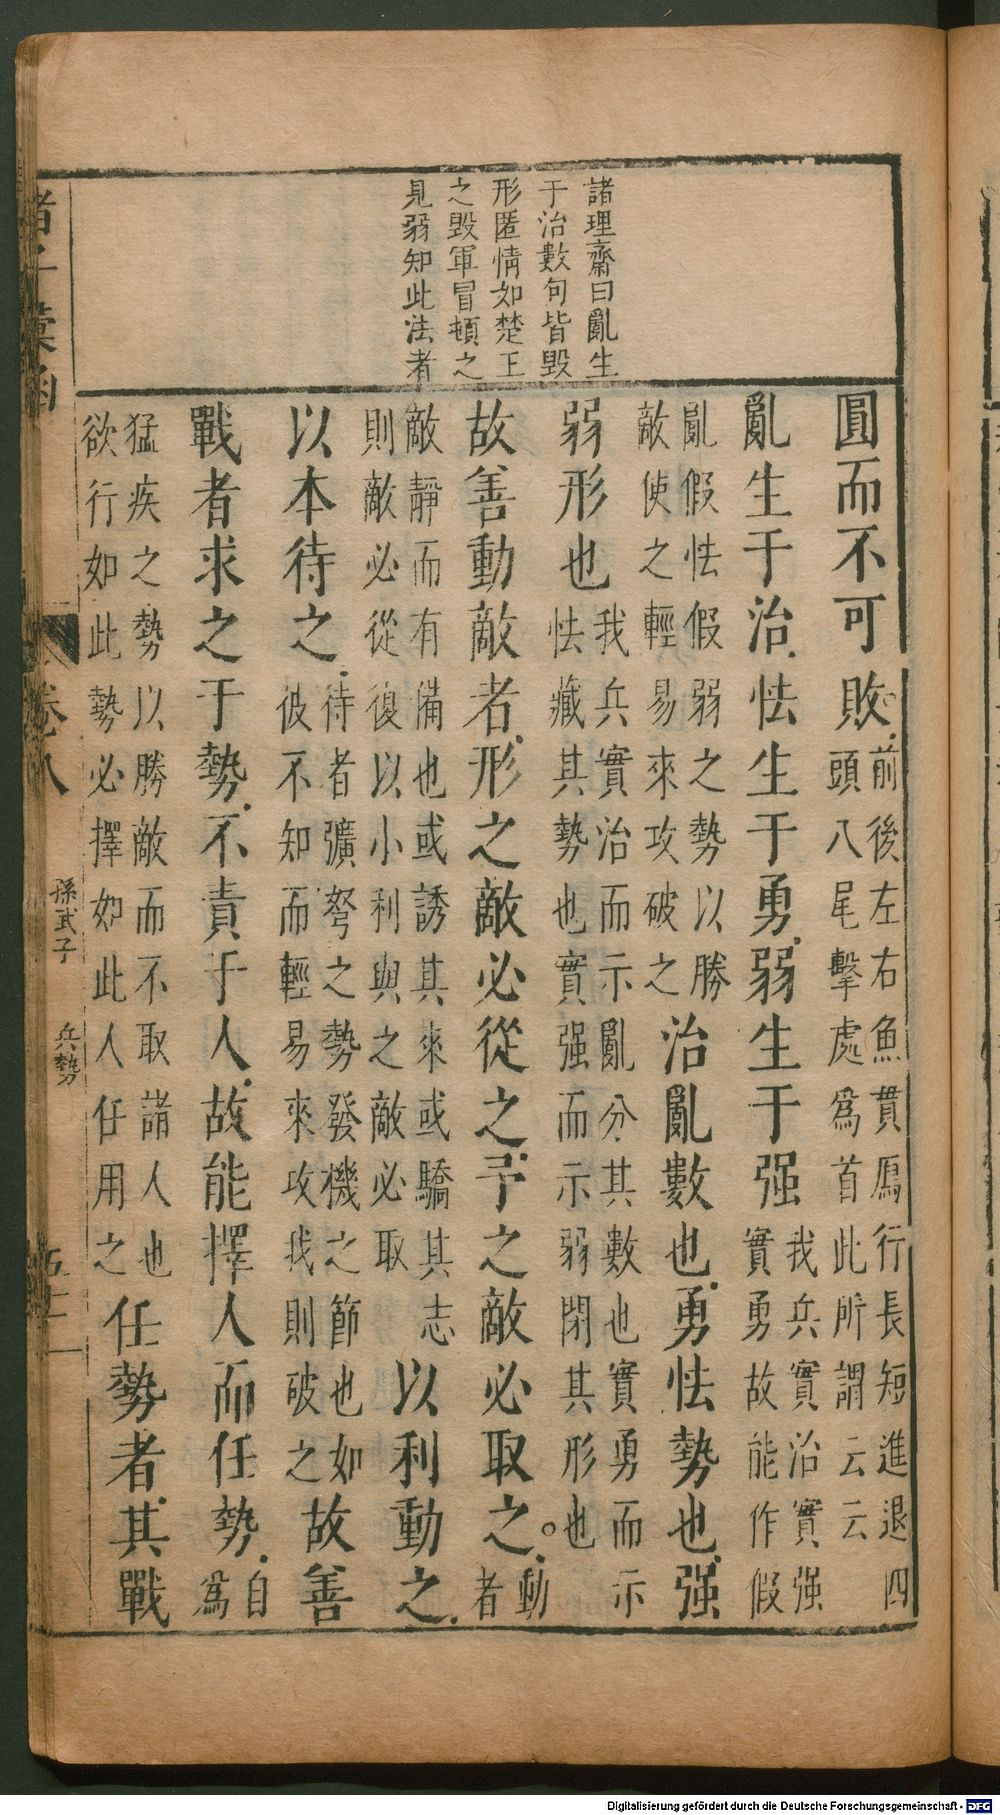 諸理齋曰亂生
于治數句皆毀
形匿情如楚王
之毀軍冒頓之
見弱知此法者
圓而不可敗前後左右魚貫鴈行長短進退四頭八尾擊處爲首此所謂云云
亂生于治怯生于勇弱生于强我兵實治實强實勇故能作假
亂假怯假弱之勢以勝敵使之輕易來攻破之治亂數也勇怯勢也强
弱形也我兵實治而示亂分其數也實勇而示怯藏其勢也實强而示弱閉其形也
故善動敵者形之敵必從之予之敵必取之。動者
敵靜而有備也或誘其來或驕其志則敵必從復以小利與之敵必取以利動之
以本待之待者彍弩之勢發機之節也如彼不知而輕易來攻我則破之故善
戰者求之于勢不責于人故能擇人而任勢自爲
猛疾之勢以勝敵而不取諸人也欲行如此勢必擇如此人任用之任勢者其戰
諸子彙函
卷八
孫武子 兵勢
Digitalisierung gefördert durch die Deutsche Forschungsgemeinschaft - DFG